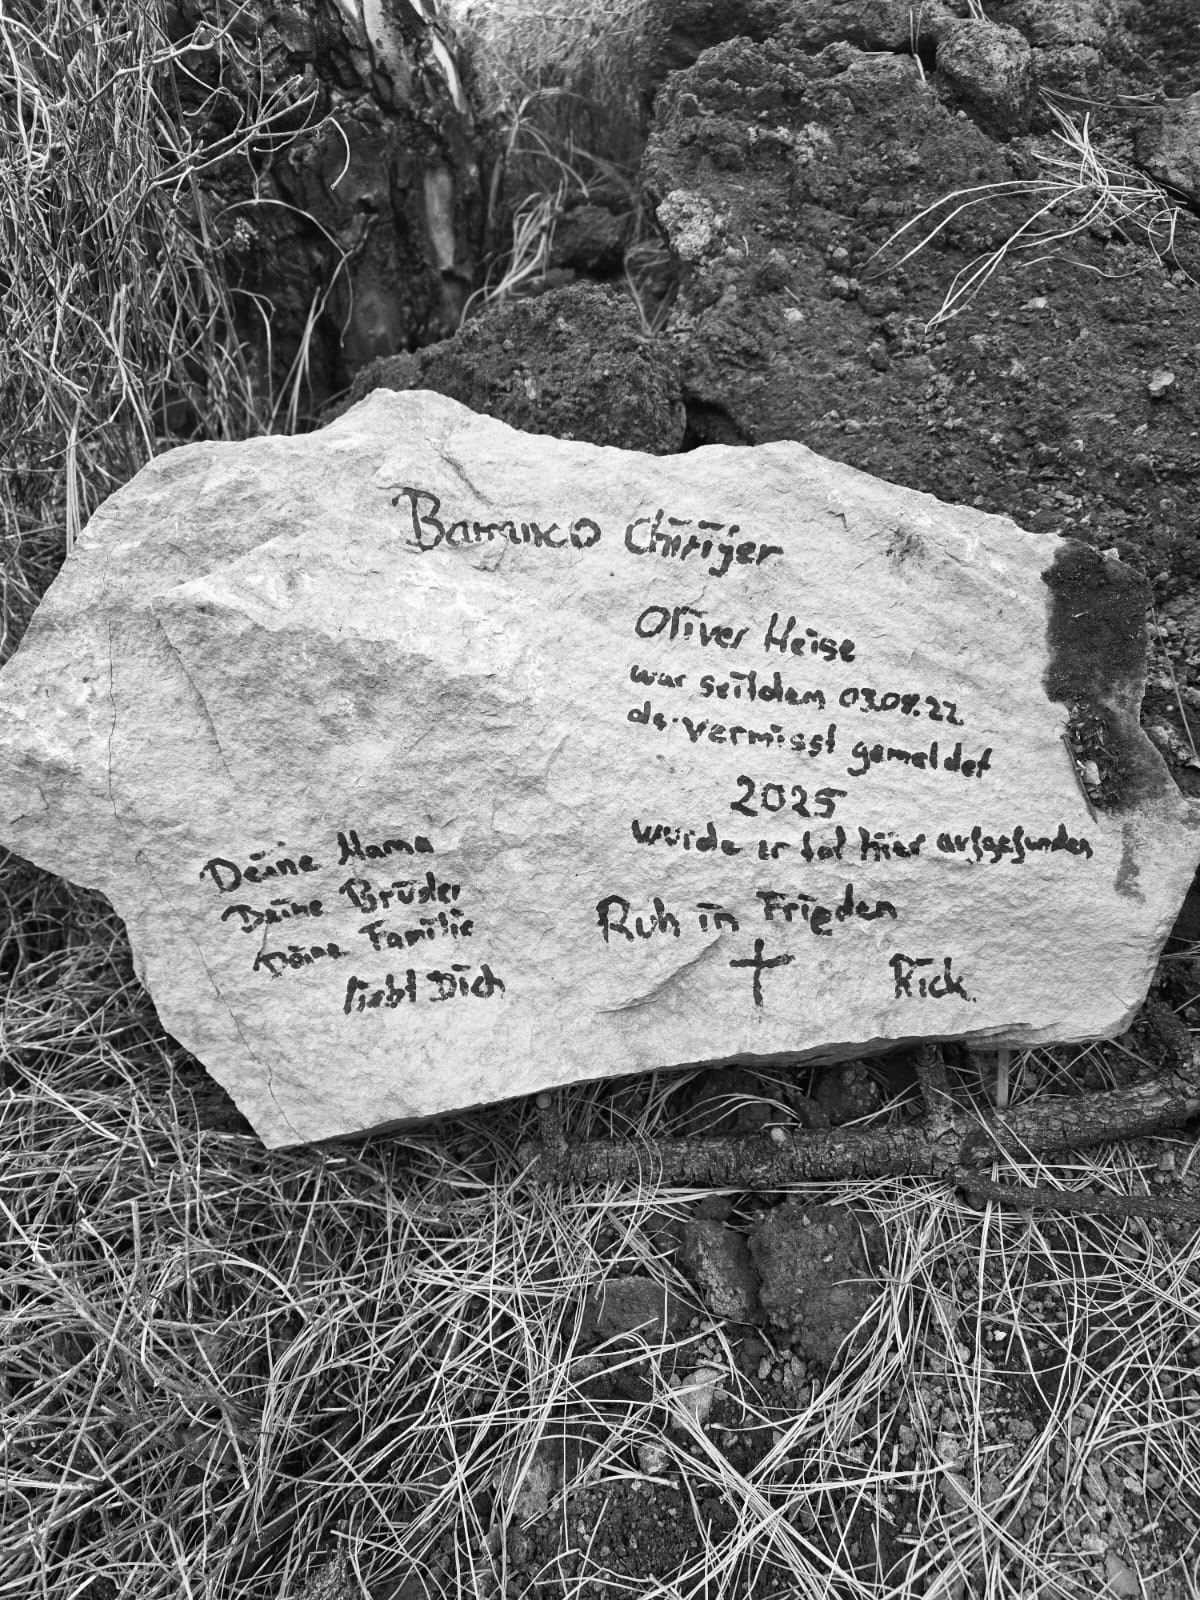 Barranco Chiriger
Oliver Heise
war seitdem 03.08.22
da vermisst gemeldet
2025
wurde er tot hier aufgefunden
Ruh in Frieden
Rick.
Deine Mama
Deine Brüder
Deine Familie
liebt Dich